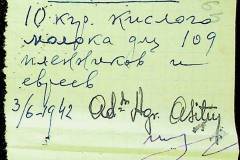 10 кгр. кислого
молока для 109
пленников и
евреев
3/6-1942 Adᵗⁿ Hgr.